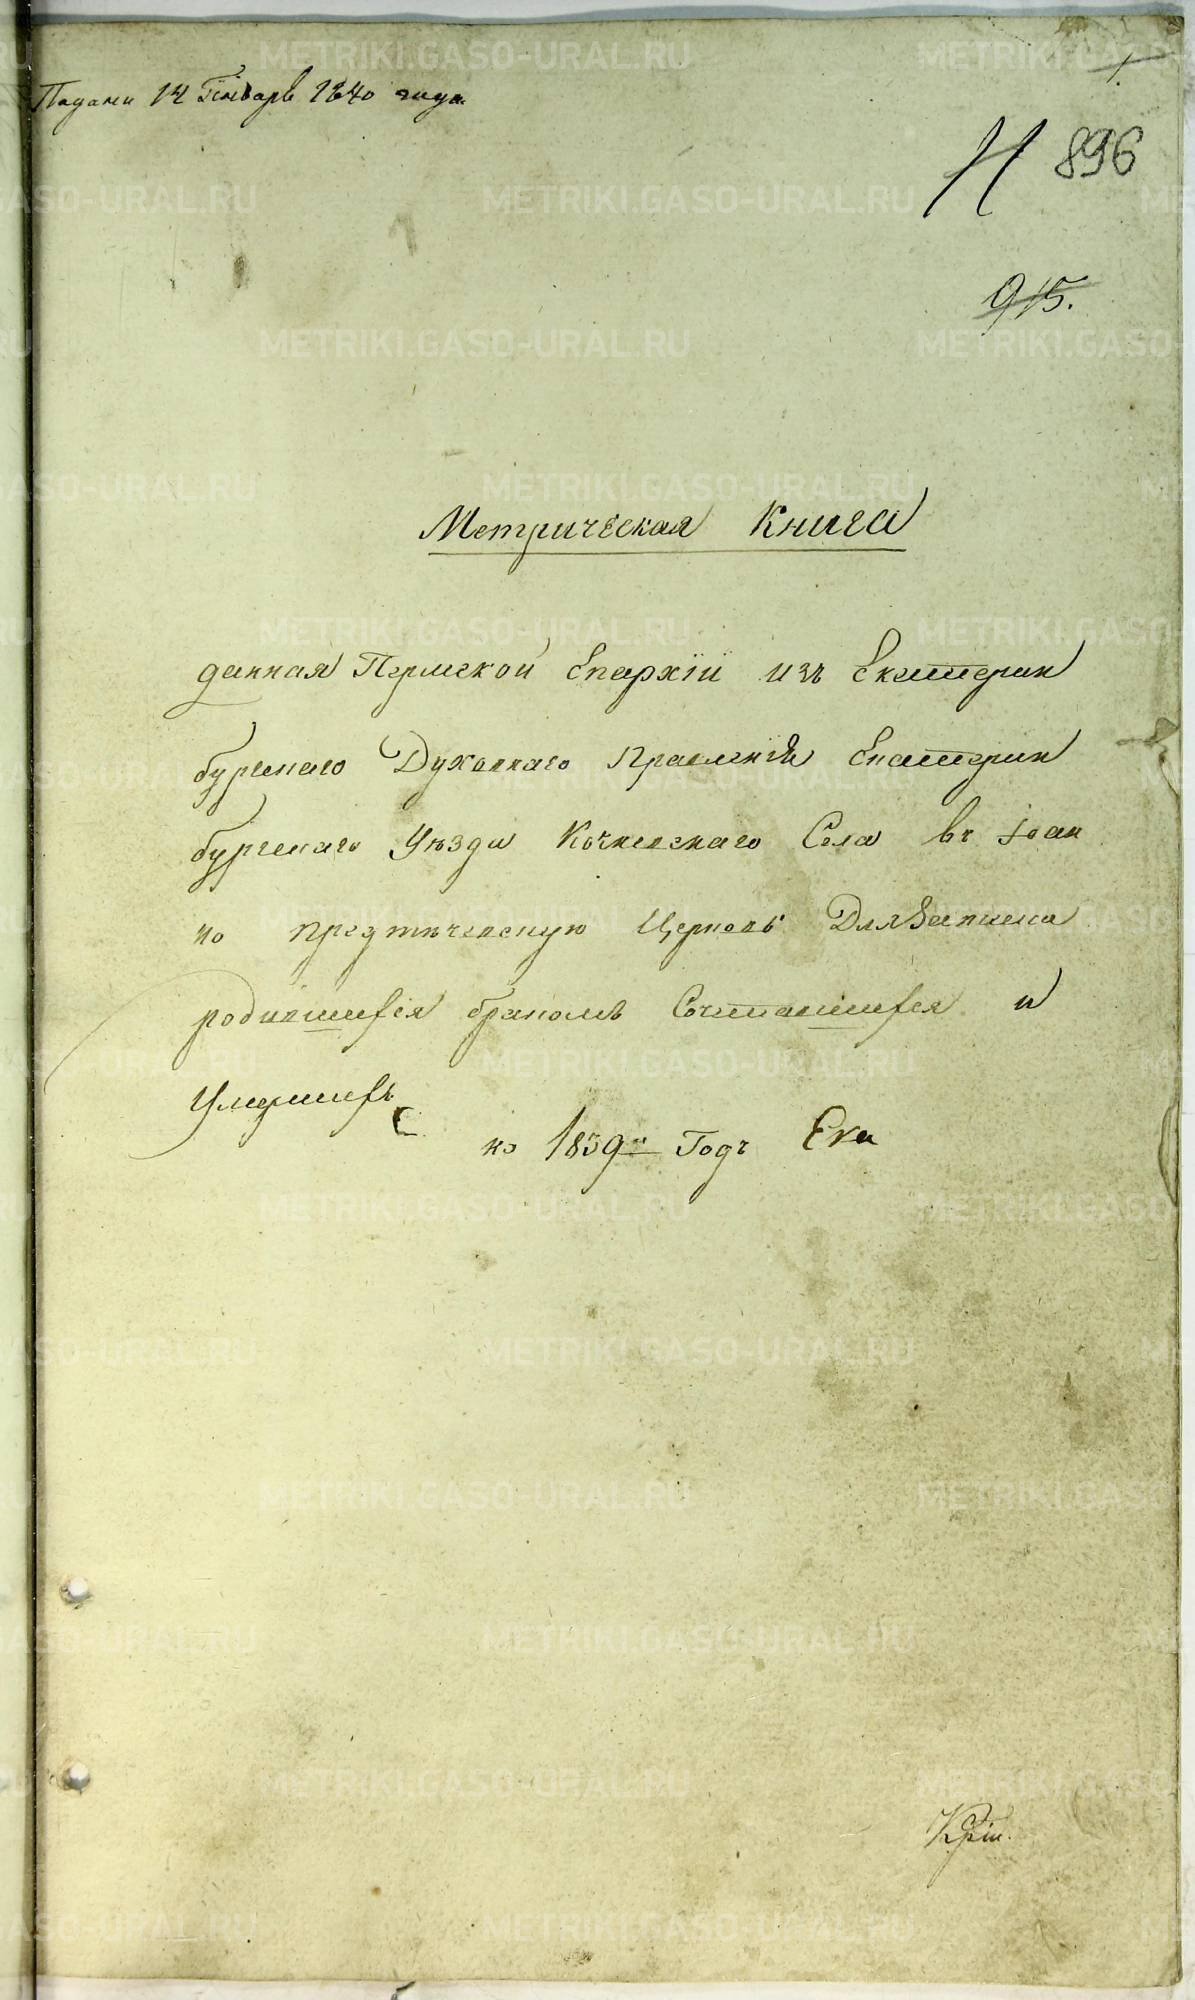 1.
Поданы 14 Генваря 1840 года
Н 896
915.
Метрическая Книга
данная Пермской Епархїи изъ Екатерин
бургскаго Духовнаго Правленїя Екатерин
бургскаго Уѣзда Кочневскаго Села въ Iоан
но Предтечевскую Церковь Для Записки
родившихся бракомъ Сочитавшихся и
Умершихъ
на 1839й Годъ Ека